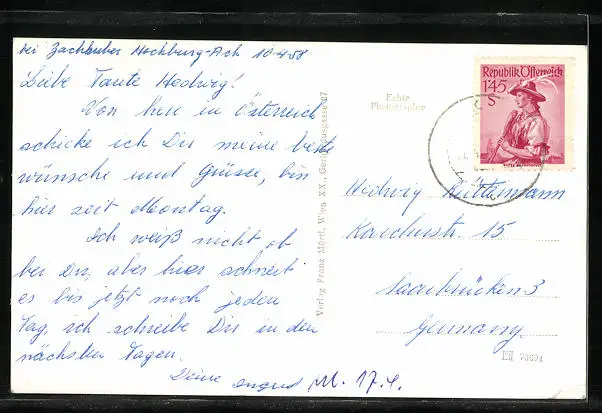 bei Zachhuber Hochburg-Ach 10.4.58
Liebe Tante Hedwig!
Von hier in Österreich
schicke ich Dir meine beste
wünsche und Grüsse, bin
hier seit Montag.
Ich weiß nicht ob
bei Dir, aber hier schneit
es bis jetzt noch jeden
Tag, ich schreibe Dir in den
nächsten Tagen.
Deine Ingrid M. 17.4.
Verlag Franz Mörtl, Wien XX., Gerhardusgasse 27
Echte
Photographie
Republik Österreich
1'45
S
Hedwig
Karcherstr. 15
Saarbrücken 3
Germany